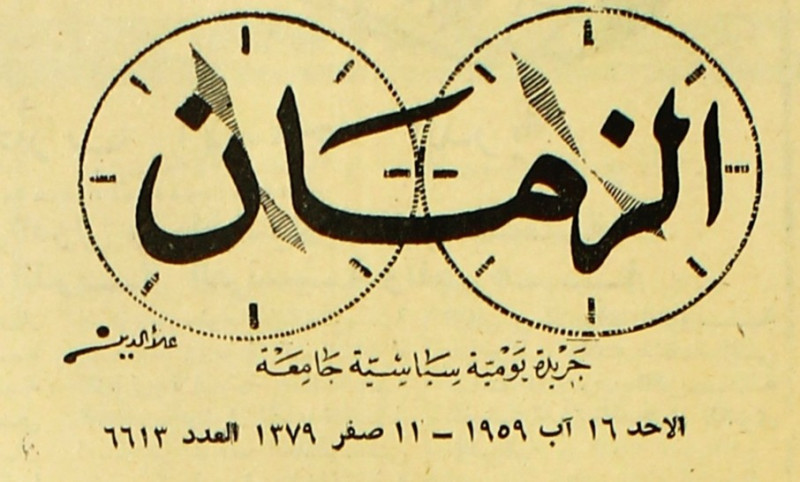 الزمان
علاء الدين
جريدة يومية سياسية جامعة
الاحد ١٦ آب ١٩٥٩ – ١١ صفر ١٣٧٩ العدد ٦٦١٣